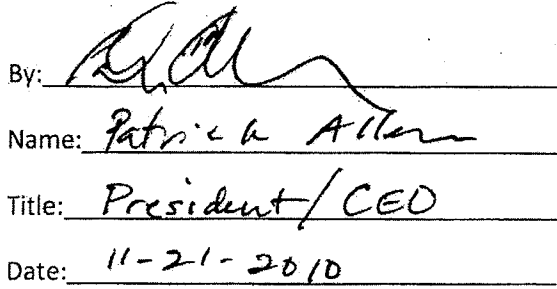 By:
Name: Patrick Allen
Title: President/CEO
Date: 11-21-2010